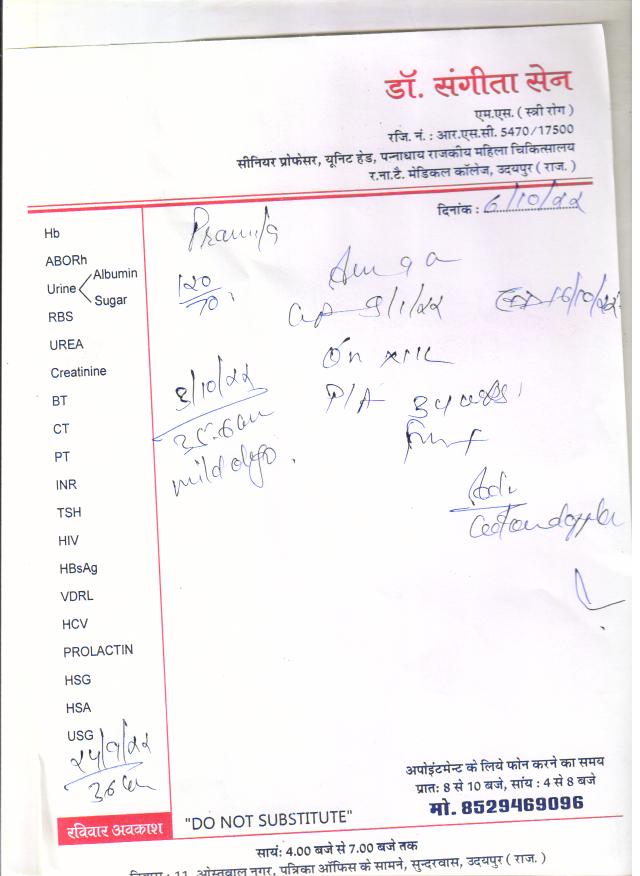 डॉ. संगीता सेन
एम.एस. ( स्त्री रोग )
रजि. नं. : आर.एस.सी. 5470/17500
सीनियर प्रोफेसर, यूनिट हेड, पन्नाधाय राजकीय महिला चिकित्सालय
र.ना.टै. मेडिकल कॉलेज, उदयपुर ( राज. )
दिनांक : 6/10/22
Hb
ABORh
Urine Albumin
Sugar
RBS
UREA
Creatinine
BT
CT
PT
INR
TSH
HIV
HBsAg
VDRL
HCV
PROLACTIN
HSG
HSA
USG
120/70
9/1/22
16/10/22
On
P/A 34
3/10/22
mild oligo.
Adv
doppler
अपोइंटमेन्ट के लिये फोन करने का समय
प्रात: 8 से 10 बजे, सांय : 4 से 8 बजे
मो. 8529469096
रविवार अवकाश
"DO NOT SUBSTITUTE"
सायं: 4.00 बजे से 7.00 बजे तक
निवास : 11, ओस्तवाल नगर, पत्रिका ऑफिस के सामने, सुन्दरवास, उदयपुर ( राज. )